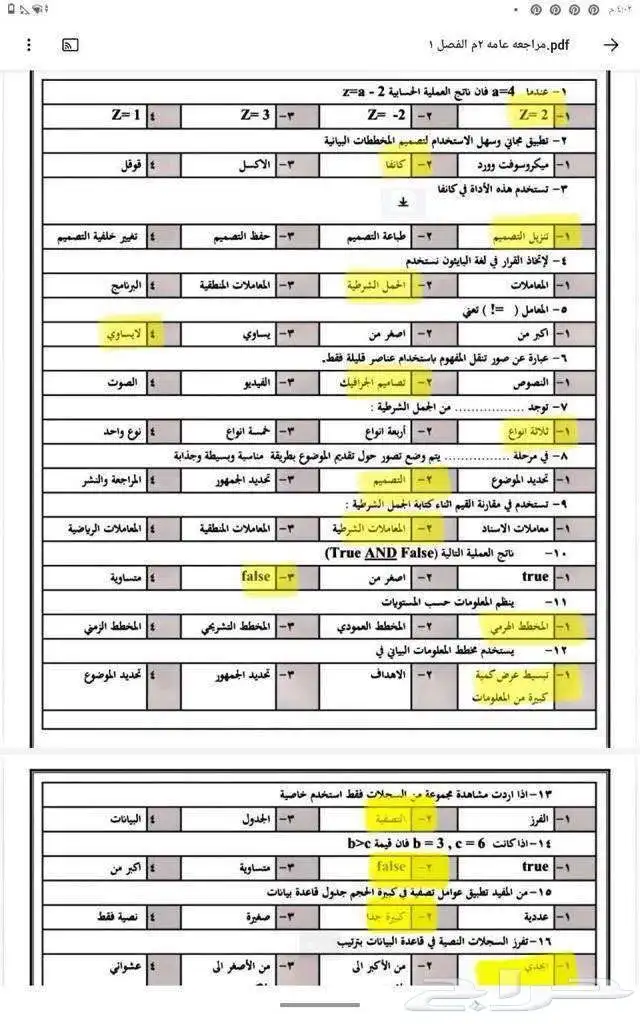 ٤:٠٢ م
مراجعه عامه ٢م الفصل ١.pdf
١- عندما a=4 فان ناتج العملية الحسابية z=a - 2
١- Z= 2 ٢- Z= -2 ٣- Z= 3 ٤ Z= 1
٢- تطبيق مجاني وسهل الاستخدام لتصميم المخططات البيانية
١- ميكروسوفت وورد ٢- كانفا ٣- الاكسل ٤ قوقل
٣- تستخدم هذه الأداة في كانفا
١- تنزيل التصميم ٢- طباعة التصميم ٣- حفظ التصميم ٤ تغيير خلفية التصميم
٤- لإتخاذ القرار في لغة البايثون نستخدم
١- المعاملات ٢- الجمل الشرطية ٣- المعاملات المنطقية ٤ البرنامج
٥- المعامل ( =! ) تعني
١- اكبر من ٢- اصغر من ٣- يساوي ٤ لايساوي
٦- عبارة عن صور تنقل المفهوم باستخدام عناصر قليلة فقط.
١- النصوص ٢- تصاميم الجرافيك ٣- الفيديو ٤ الصوت
٧- توجد ................. من الجمل الشرطية :
١- ثلاثة انواع ٢- أربعة انواع ٣- خمسة انواع ٤ نوع واحد
٨- في مرحلة ................ يتم وضع تصور حول تقديم الموضوع بطريقة مناسبة وبسيطة وجذابة
١- تحديد الموضوع ٢- التصميم ٣- تحديد الجمهور ٤ المراجعة والنشر
٩- تستخدم في مقارنة القيم اثناء كتابة الجمل الشرطية :
١- معاملات الاسناد ٢- المعاملات الشرطية ٣- المعاملات المنطقية ٤ المعاملات الرياضية
١٠- ناتج العملية التالية (True AND False)
١- true ٢- اصغر من ٣- false ٤ متساوية
١١- ينظم المعلومات حسب المستويات
١- المخطط الهرمي ٢- المخطط العمودي ٣- المخطط التشريحي ٤ المخطط الزمني
١٢- يستخدم مخطط المعلومات البياني في
١- تبسيط عرض كمية كبيرة من المعلومات ٢- الاهداف ٣- تحديد الجمهور ٤ تحديد الموضوع
١٣- اذا اردت مشاهدة مجموعة من السجلات فقط استخدم خاصية
١- الفرز ٢- التصفية ٣- الجدول ٤ البيانات
١٤- اذا كانت b = 3 , c = 6 فان قيمة b>c
١- true ٢- false ٣- متساوية ٤ اكبر من
١٥- من المفيد تطبيق عوامل تصفية في كبيرة الحجم جدول قاعدة بيانات
١- عددية ٢- كبيرة جدا ٣- صغيرة ٤ نصية فقط
١٦- تفرز السجلات النصية في قاعدة البيانات بترتيب
١- ابجدي ٢- من الأكبر الى ٣- من الأصغر الى ٤ عشوائي
حراج